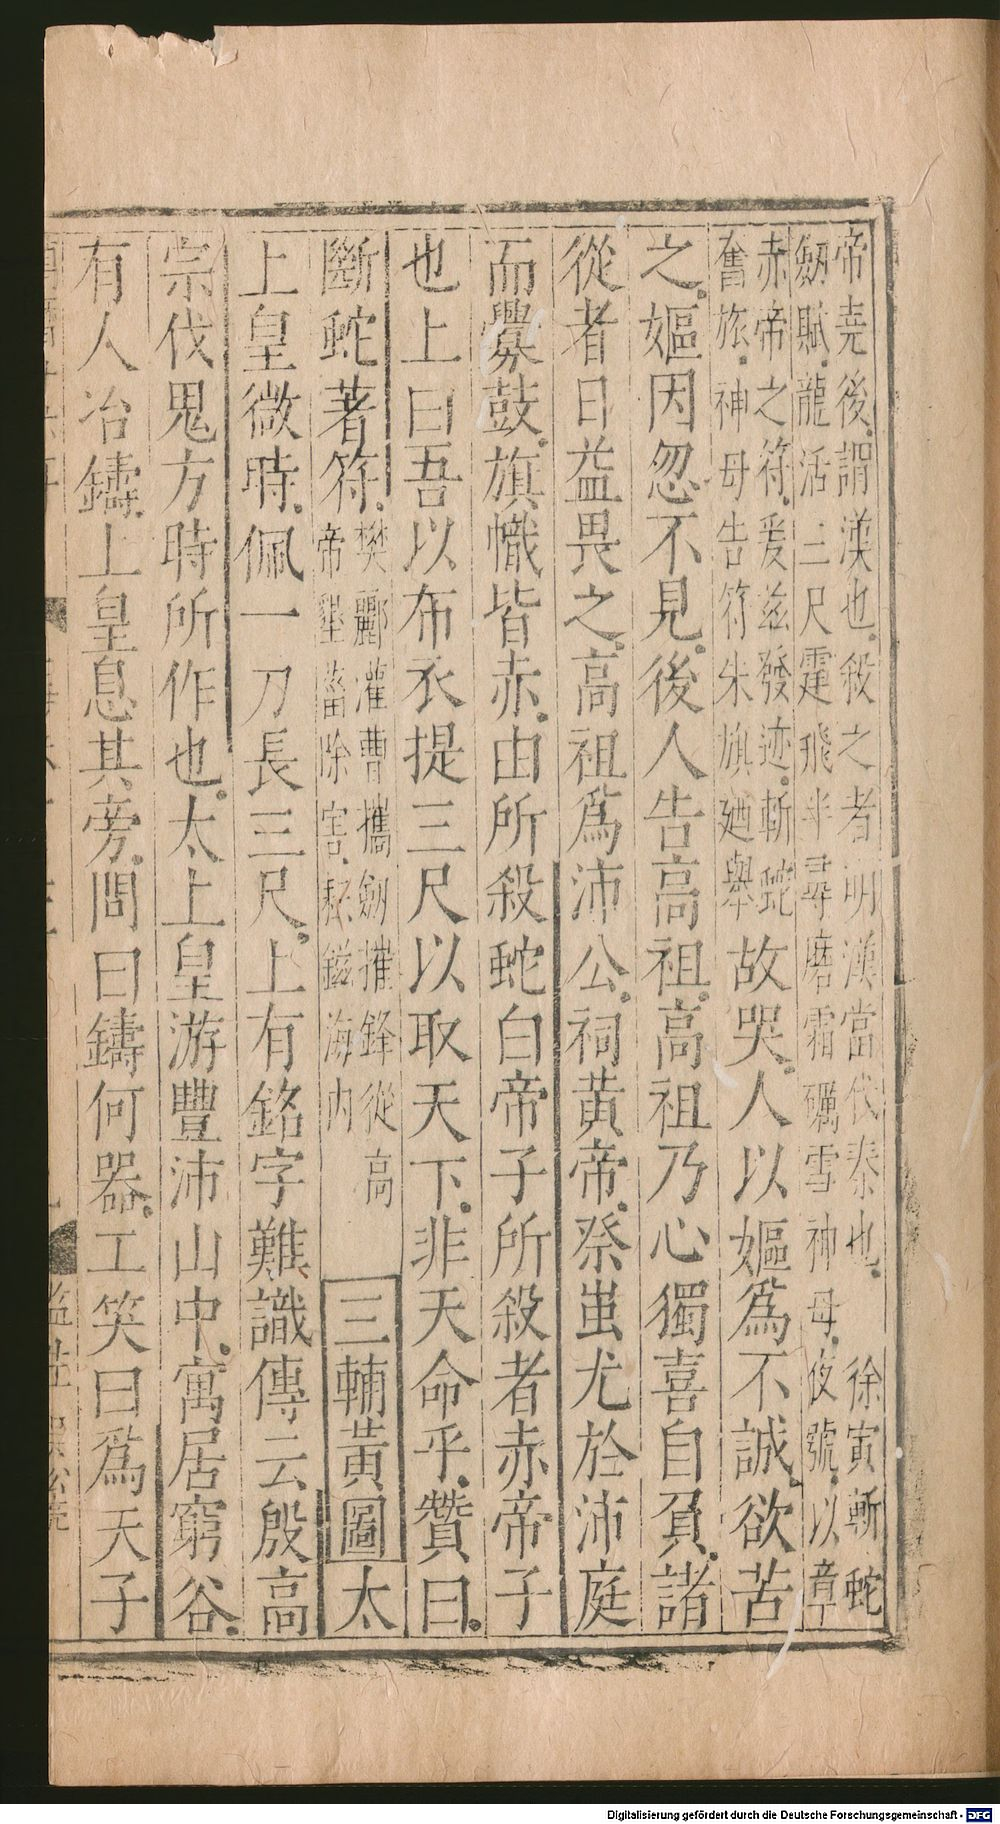 帝堯後謂漢也殺之者明漢當代秦也　徐寅斬蛇
劒賦龍活三尺霆飛半尋磨霜礪雪神母夜號以章
赤帝之符爰玆發迹斬蛇
奮旅神母告符朱旗廼舉
故哭人以嫗爲不誠欲苦
之嫗因忽不見後人告高祖高祖乃心獨喜自負諸
從者日益畏之高祖爲沛公祠黃帝祭蚩尤於沛庭
而釁鼓旗幟皆赤由所殺蛇白帝子所殺者赤帝子
也上曰吾以布衣提三尺以取天下非天命乎贊曰
斷蛇著符
樊酈灌曹攜劒摧鋒從高
帝墾菑除害鎡海內
三輔黃圖太
上皇微時佩一刀長三尺上有銘字難識傳云殷高
宗伐鬼方時所作也太上皇游豐沛山中寓居窮谷
有人冶鑄上皇息其旁問曰鑄何器工笑曰爲天子
Digitalisierung gefördert durch die Deutsche Forschungsgemeinschaft - DFG